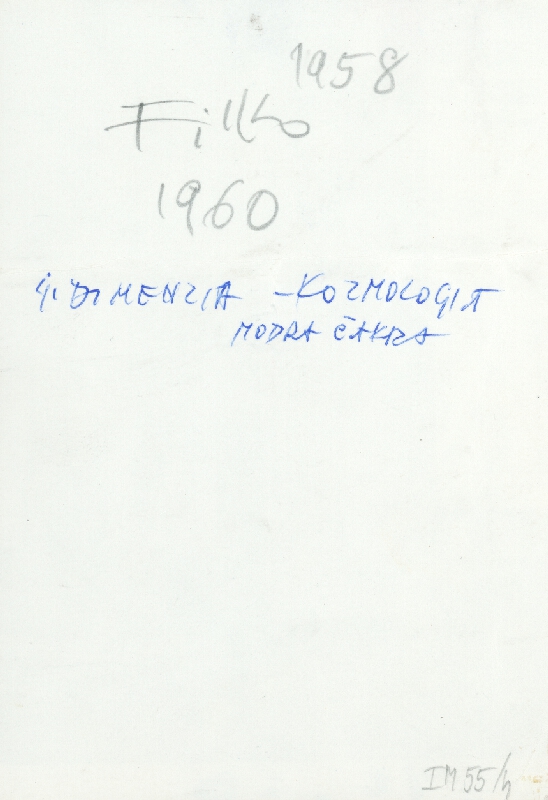 1958
Filko
1960
4. DIMENZIA - KOZMOLOGIA
MODRA ČAKRA
IM 55/h